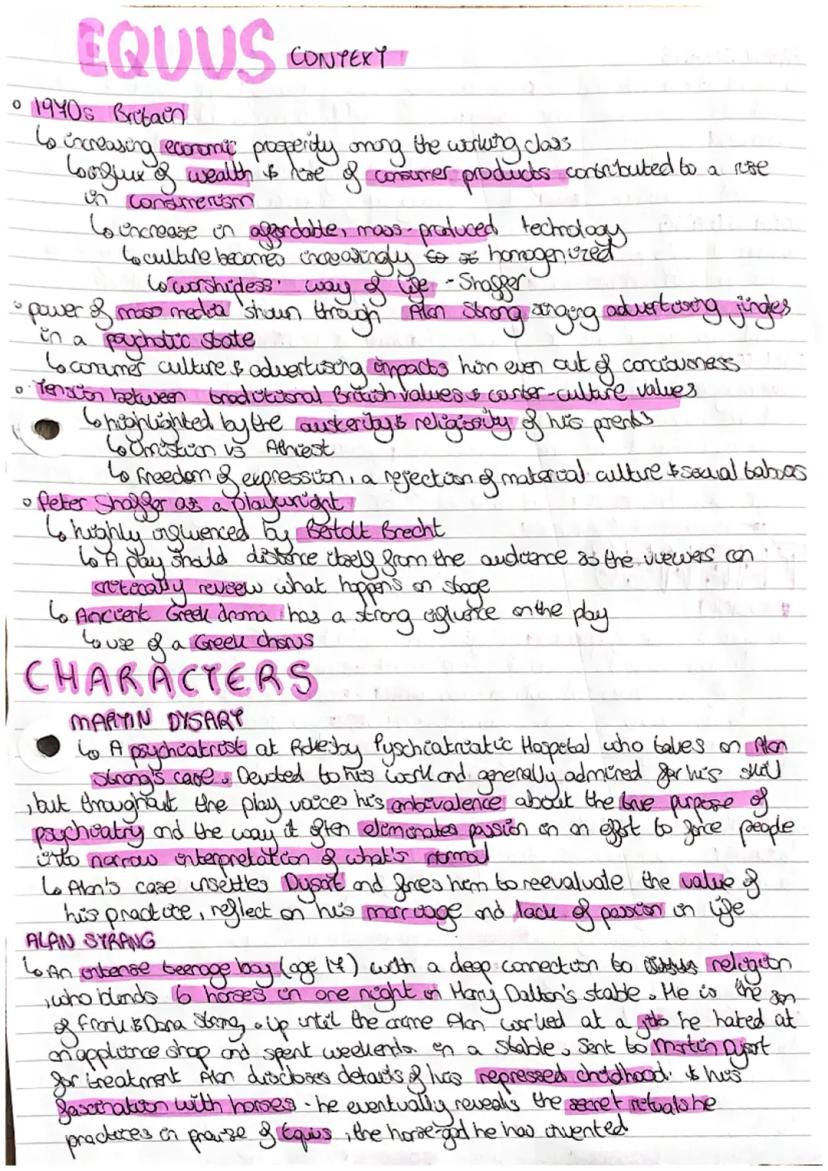 EQUUS CONTEXT
◦ 1970s Britain
↳ increasing economic prosperity among the working class
↳ influx of wealth & rise of consumer products contributed to a rise
in consumerism
↳ increase in affordable, mass-produced technology
↳ culture becomes increasingly homogenized
↳ 'worshipless' way of life - Shaffer
◦ power of mass media shown through Alan Strang singing advertising jingles
in a psychotic state
↳ consumer culture & advertising impacts him even out of conciousness
◦ Tension between traditional British values & counter-culture values
↳ highlighted by the austerity & religiosity of his parents
↳ Christian vs Athiest
↳ freedom of expression, a rejection of material culture & sexual taboos
◦ Peter Shaffer as a playwright
↳ highly influenced by Bertolt Brecht
↳ A play should distance itself from the audience so the viewers can
critically review what happens on stage
↳ Ancient Greek drama has a strong influence on the play
↳ use of a Greek chorus
CHARACTERS
MARTIN DYSART
↳ A psychiatrist at Rokeby Pyschiatriatic Hospital who takes on Alan
Strang's case. Devoted to his work and generally admired for his skill
, but throughout the play voices his ambivalence about the true purpose of
psychiatry and the way it often eliminates passion in an effort to force people
into narrow interpretation of what's normal
↳ Alan's case unsettles Dysart and forces him to reevaluate the value of
his practice, reflect on his marriage and lack of passion in life
ALAN STRANG
↳ An intense teenage boy (age 17) with a deep connection to religion
, who blinds 6 horses in one night in Harry Dalton's stable. He is the son
of Frank & Dora Strang. Up until the crime Alan worked at a job he hated at
an appliance shop and spent weekends in a stable. Sent to Martin Dysart
for treatment Alan discloses details of his repressed childhood & his
fascination with horses - he eventually reveals the secret rituals he
practices in praise of Equus, the horse god he has invented